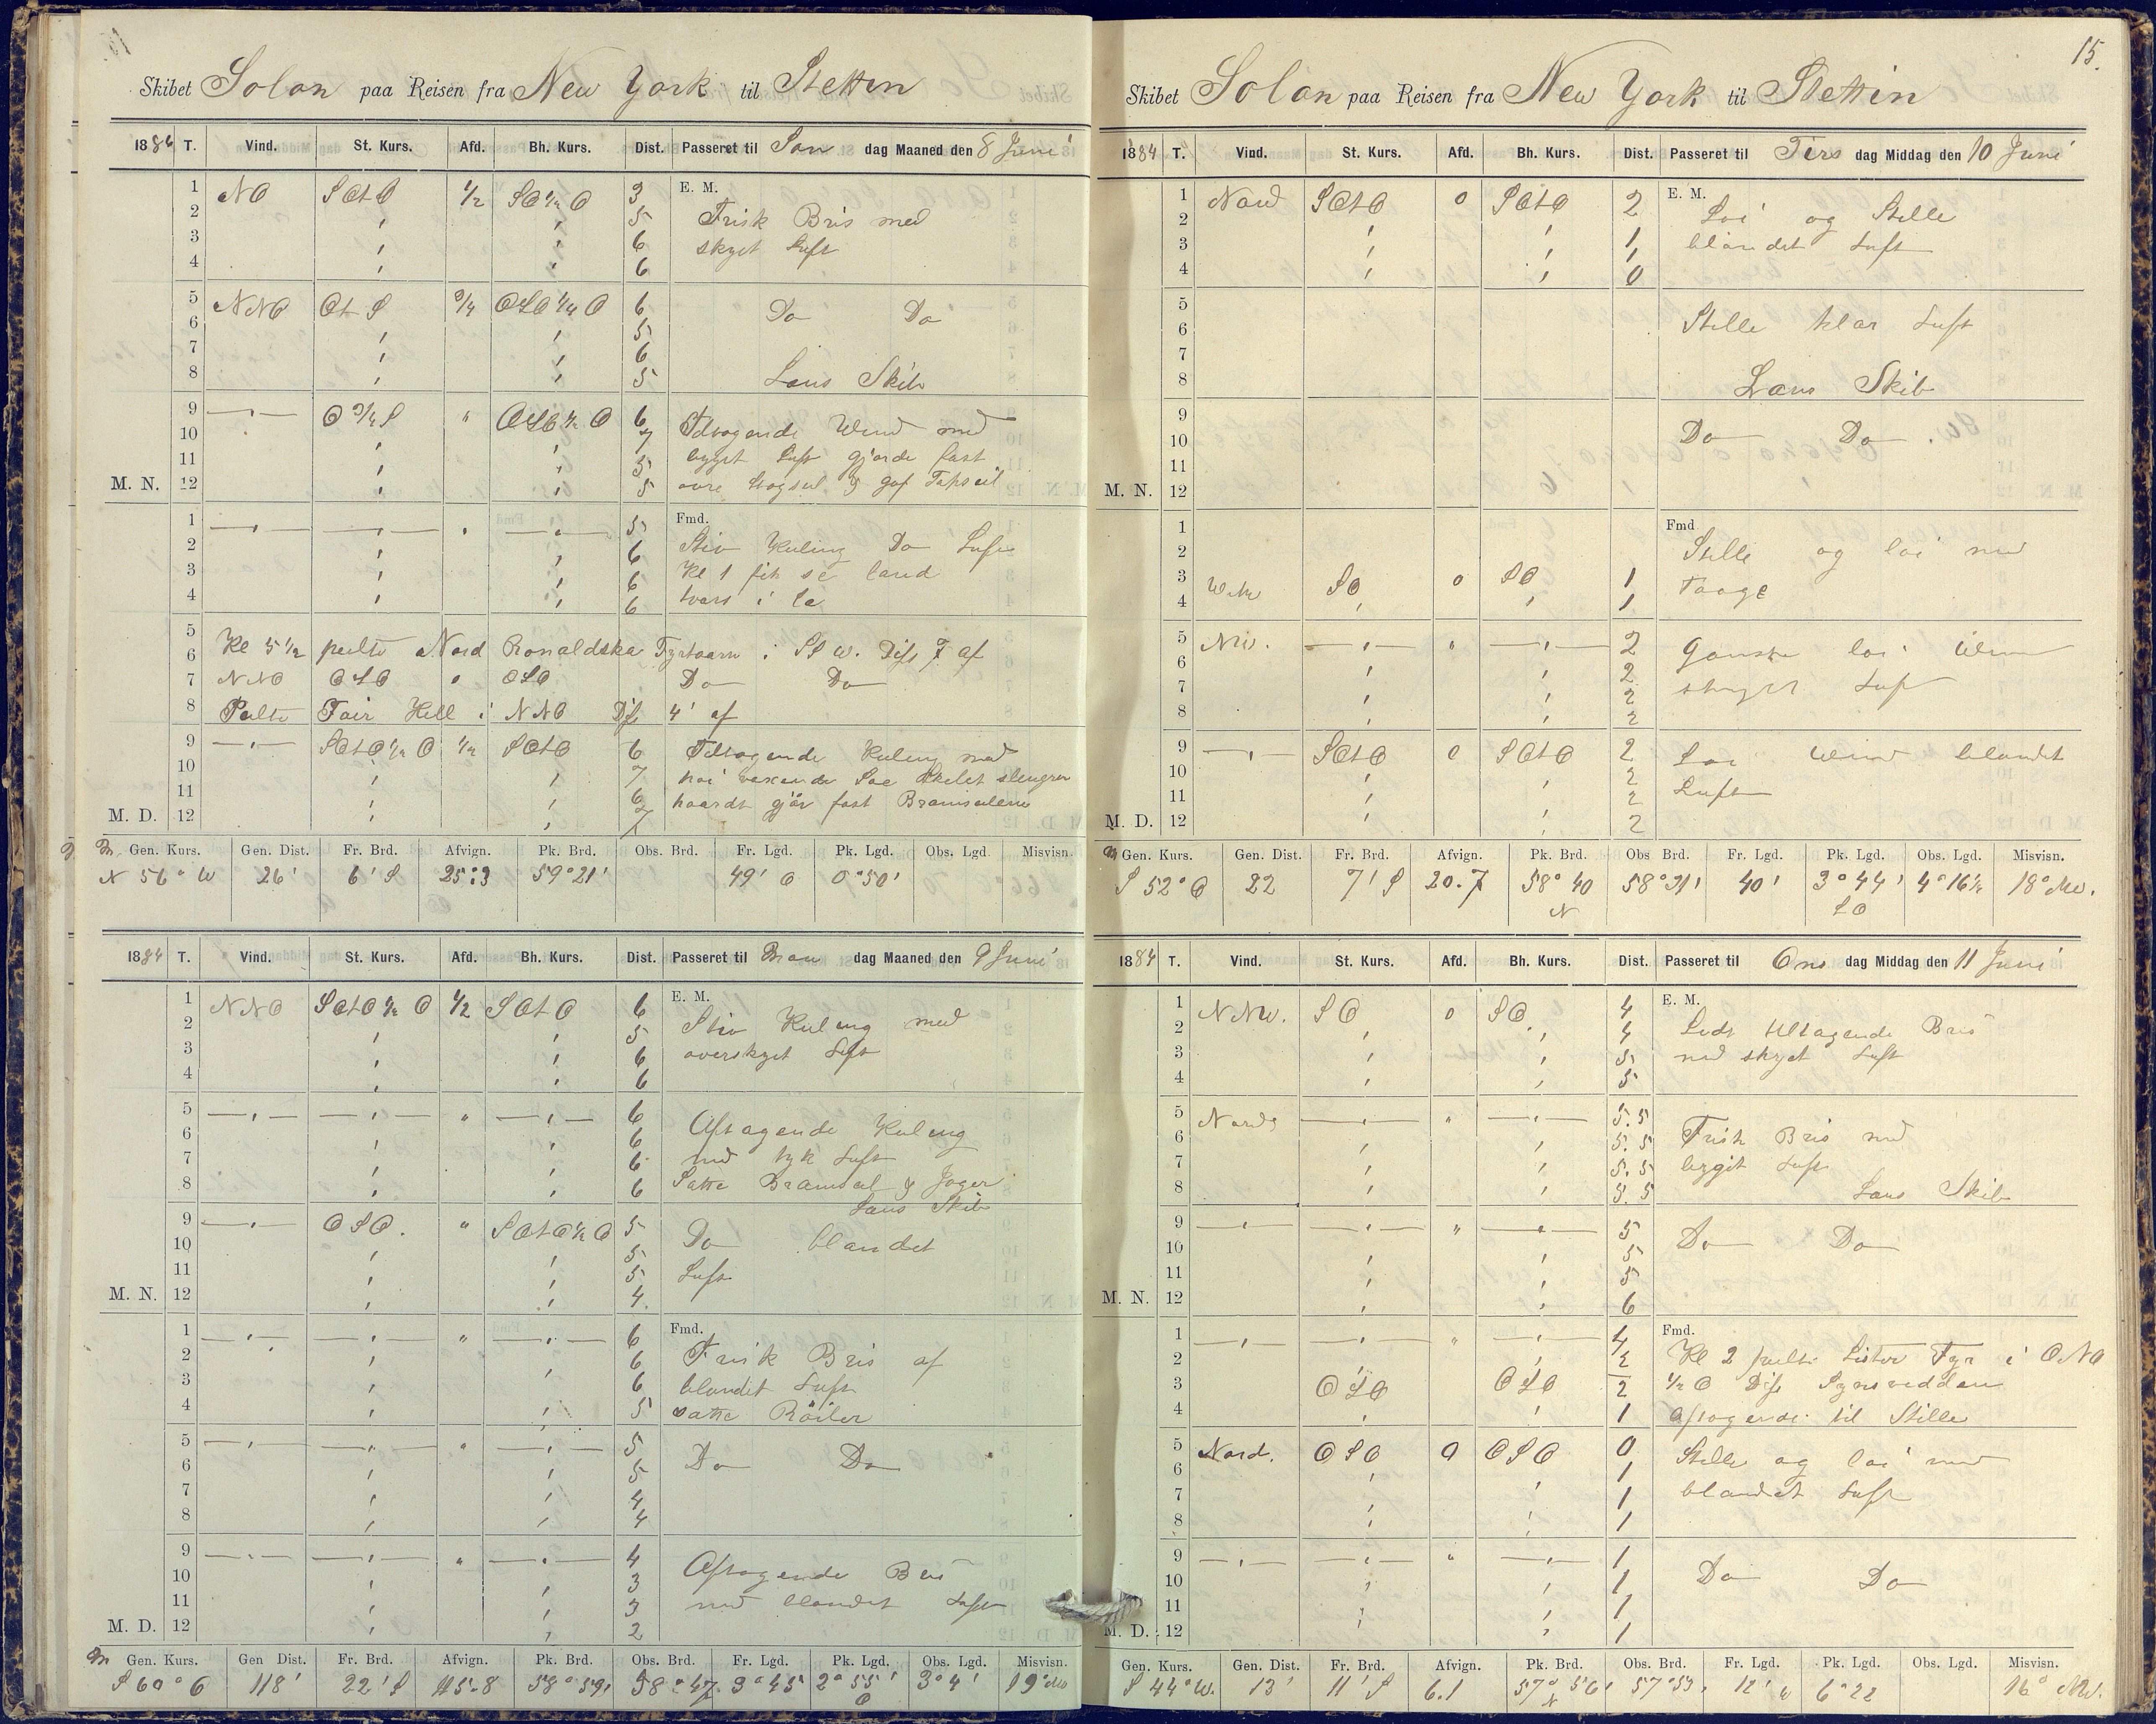 Skibet Solon paa Reisen fra New York til Stettin
1884 T. Vind. St. Kurs. Afd. Bh. Kurs. Dist. Passeret til Søn dag Maaned den 8 Juni
1 NO SOtO 1/2 SO 1/2 O 3 E. M.
2 5 Frisk Bris med
3 6 skyet Luft
4 6
5 NNO OtS 3/4 OSO 1/4 O 6 Do Do
6 5
7 6
8 5 Læns Skib
9 O 3/4 S " OSO 1/2 O 6 Tiltagende Wind med
10 7 bygget Luft gjorde fast
11 5
M. N. 12 5
1 5 Fmd.
2 6 Stiv Kuling Do Luft
3 6 Kl 1 fik se land
4 6 tvers i læ
5
6 Kl 5 1/2 peilte Nord Ronaldska Fyrtaarn i SSW. Dist 7 af
7 NNO OSO 0 OSO Do Do
8 Peilte Fair Hill i NNO Dist 4' af
9 SOtO 1/2 O 1/2 SOtO 6 Tiltagende Kuling med
10 7 høi voxende Søe Skibet slengrer
11 6 haardt gjør fast Bramseilene
M. D. 12 7
Gen. Kurs. Gen. Dist. Fr. Brd. Afvign. Pk. Brd. Obs. Brd. Fr. Lgd. Pk. Lgd. Obs. Lgd Misvisn.
N 56° W 26' 6' S 25.3 59°21' 49' O 0°50'
1884 T. Vind. St. Kurs. Afd. Bh. Kurs. Dist. Passeret til Man dag Maaned den 9 Juni
1 NNO SOtO 1/2 O 1/2 SOtO 6 E. M.
2 5 Stiv Kuling med
3 6 overskyet Luft
4 6
5 " 6 Aftagende Kuling
6 6
7 6 med tyk Luft
8 6 Satte Bramseil & Jager
Læns Skib
9 OSO. " SOtO 1/2 O 5 Do blandet
10 5
11 5 Luft
M. N. 12 4.
1 " 6 Fmd.
2 6 Frisk Bris af
3 6 blandet Luft
4 5 satte Røiler
5 " 5
6 5 Do Do
7 4
8 4
9 " 4 Aftagende Bris
10 3
11 3 med blandet Luft
M. D. 12 2
Gen. Kurs. Gen Dist. Fr. Brd. Afvign. Pk. Brd. Obs. Brd. Fr. Lgd. Pk. Lgd. Obs. Lgd. Misvisn.
S 60° O 118' 22' S 115.8 58°59' 58°47 3°45' 2°55' O 3°4' 19°
15.
Skibet Solon paa Reisen fra New York til Stettin
1884 T. Vind. St. Kurs. Afd. Bh. Kurs. Dist. Passeret til Tirs dag Middag den 10 Juni
1 Nord SOtO 0 SOtO 2 E. M.
2 Løi og Stille
3 1 blandet Luft
4 0
5
6 Stille klar Luft
7
8 Læns Skib
9
10 Do Do
11
M. N. 12
1 Fmd
2 Stille og løi med
3 SO 0 SO 1 Taage
4 1
5 NW. " 2 Ganske løi Wind
6 2
7 2 skyet Luft
8 2
9 SOtO 0 SOtO 2 Løi Wind blandet
10 2
11 2 Luft
M. D. 12 2
Gen. Kurs. Gen. Dist. Fr. Brd. Afvign. Pk. Brd. Obs Brd. Fr. Lgd. Pk. Lgd. Obs. Lgd. Misvisn.
S 52° O 22 7' S 20.7 58° 40 N 58°31' 40' 3°44' 4°16 1/2 18°
1884 T. Vind. St. Kurs. Afd. Bh. Kurs. Dist. Passeret til Ons dag Middag den 11 Juni
1 NNW. SO 0 SO 4 E. M.
2 4 Lidt tiltagende Bris
3 5 med skyet Luft
4 5
5 Nord " 5.5
6 5.5 Frisk Bris med
7 5.5 bygget Luft
8 5.5 Læns Skib
9 " 5
10 5 Do Do
11 5
M. N. 12 6
1 " 4 Fmd.
2 Kl 2 peilte Lister Fyr i ONO
3 OSO OSO 2 1/2 O Dist Synsvidden
4 1 aftagende til Stille
5 Nord. OSO 0 OSO 0 Stille og løi med
6 1
7 1 blandet Luft
8 1
9 " 1
10 1 Do Do
11 1
M. D. 12 1
Gen. Kurs. Gen. Dist. Fr. Brd. Afvign. Pk. Brd. Obs. Brd. Fr. Lgd. Pk. Lgd. Obs. Lgd. Misvisn.
S 44° W. 13' 11' S 6.1 57° 56' N 57°53' 12' W 6°22 16° NW.